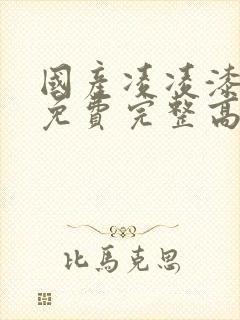 國產凌凌漆
免費完整高
比馬克思